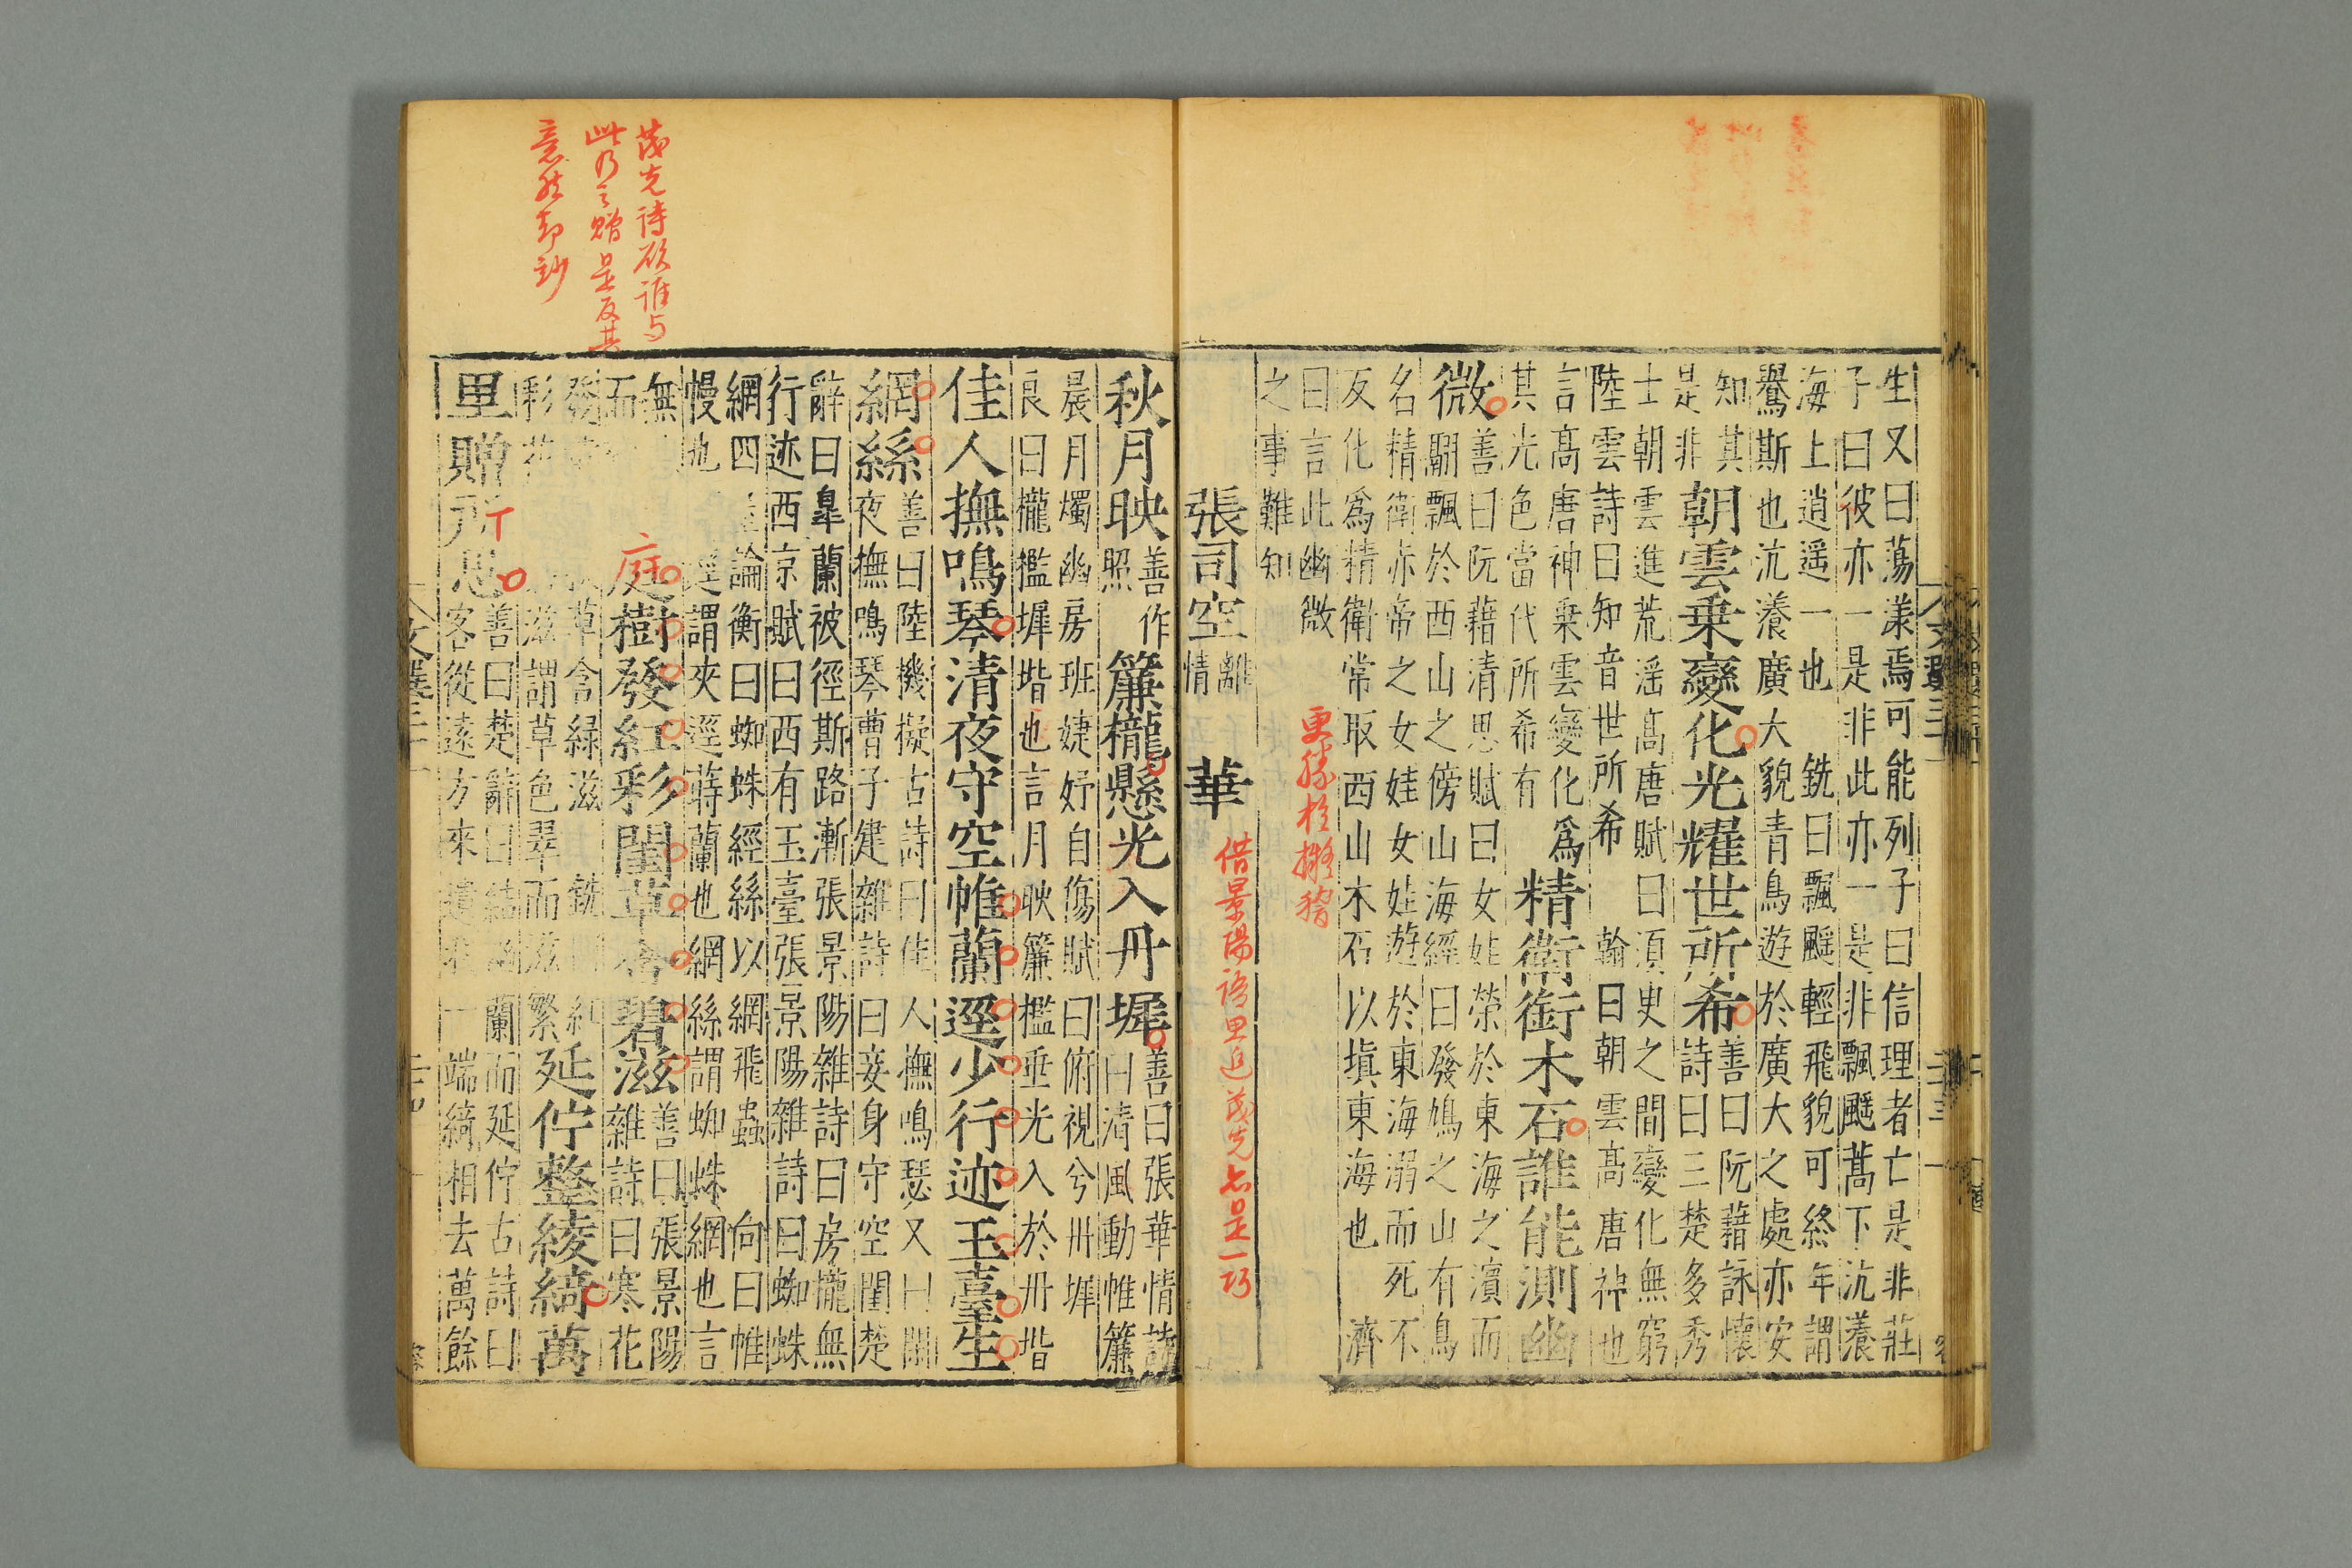 生又曰蕩漾焉可能列子曰信理者亡是非莊
子曰彼亦一是非此亦一是非飄颻高下沆瀁
海上逍遥一也 銑曰飄颻輕飛貌可終年謂
鷽斯也沆瀁廣大貌青鳥遊於廣大之處亦安
知其
是非
朝雲乗變化光耀世所希
善曰阮藉詠懷
詩曰三楚多秀
士朝雲進荒滛高唐賦曰湏㬰之間變化無窮
陸雲詩曰知音世所希 翰曰朝雲高唐神也
言高唐神乗雲變化爲
其光色當代所希有
精衛銜木石誰能測幽
微
善曰阮藉清思賦曰女娃榮於東海之濵而
翩飄於西山之傍山海經曰發鳩之山有鳥
名精衛赤帝之女娃女娃遊於東海溺而死不
反化爲精衛常取西山木石以塡東海也 濟
曰言此幽微
之事難知
更勝於擬嵇
張司空
離
情
華
借景陽語思追茂先亦是一巧
秋月映
善作
照
簾櫳懸光入丹墀
善曰張華情詩
曰清風動帷簾
晨月燭幽房班婕妤自傷賦曰俯視兮丹墀
良曰櫳檻墀堦也言月映簾檻垂光入於丹堦
佳人撫鳴琴清夜守空帷蘭逕少行迹玉臺生
網絲
善曰陸機擬古詩曰佳人撫鳴瑟又曰閑
夜撫鳴琴曹子建雜詩曰妾身守空閨楚
辭曰臯蘭被徑斯路漸張景陽雜詩曰房櫳無
行迹西京賦曰西有玉臺張景陽雜詩曰蜘蛛
網四 論衡曰蜘蛛經絲以網飛蟲 向曰帷
幔也 逕謂夾逕蒔蘭也網絲謂蜘蛛網也言
無
而
庭
庭樹發紅彩閨草含碧滋
善曰張景陽
雜詩曰寒花
發 草含緑滋 銑曰紅
彩花 滋謂草色翠而滋繁
延佇整綾綺萬
里贈所思
善曰楚辭曰結幽蘭而延佇古詩曰
客從遠方來遺我一端綺相去萬餘
茂先詩欣誰与
此乃言贈是反其
意然却鈔